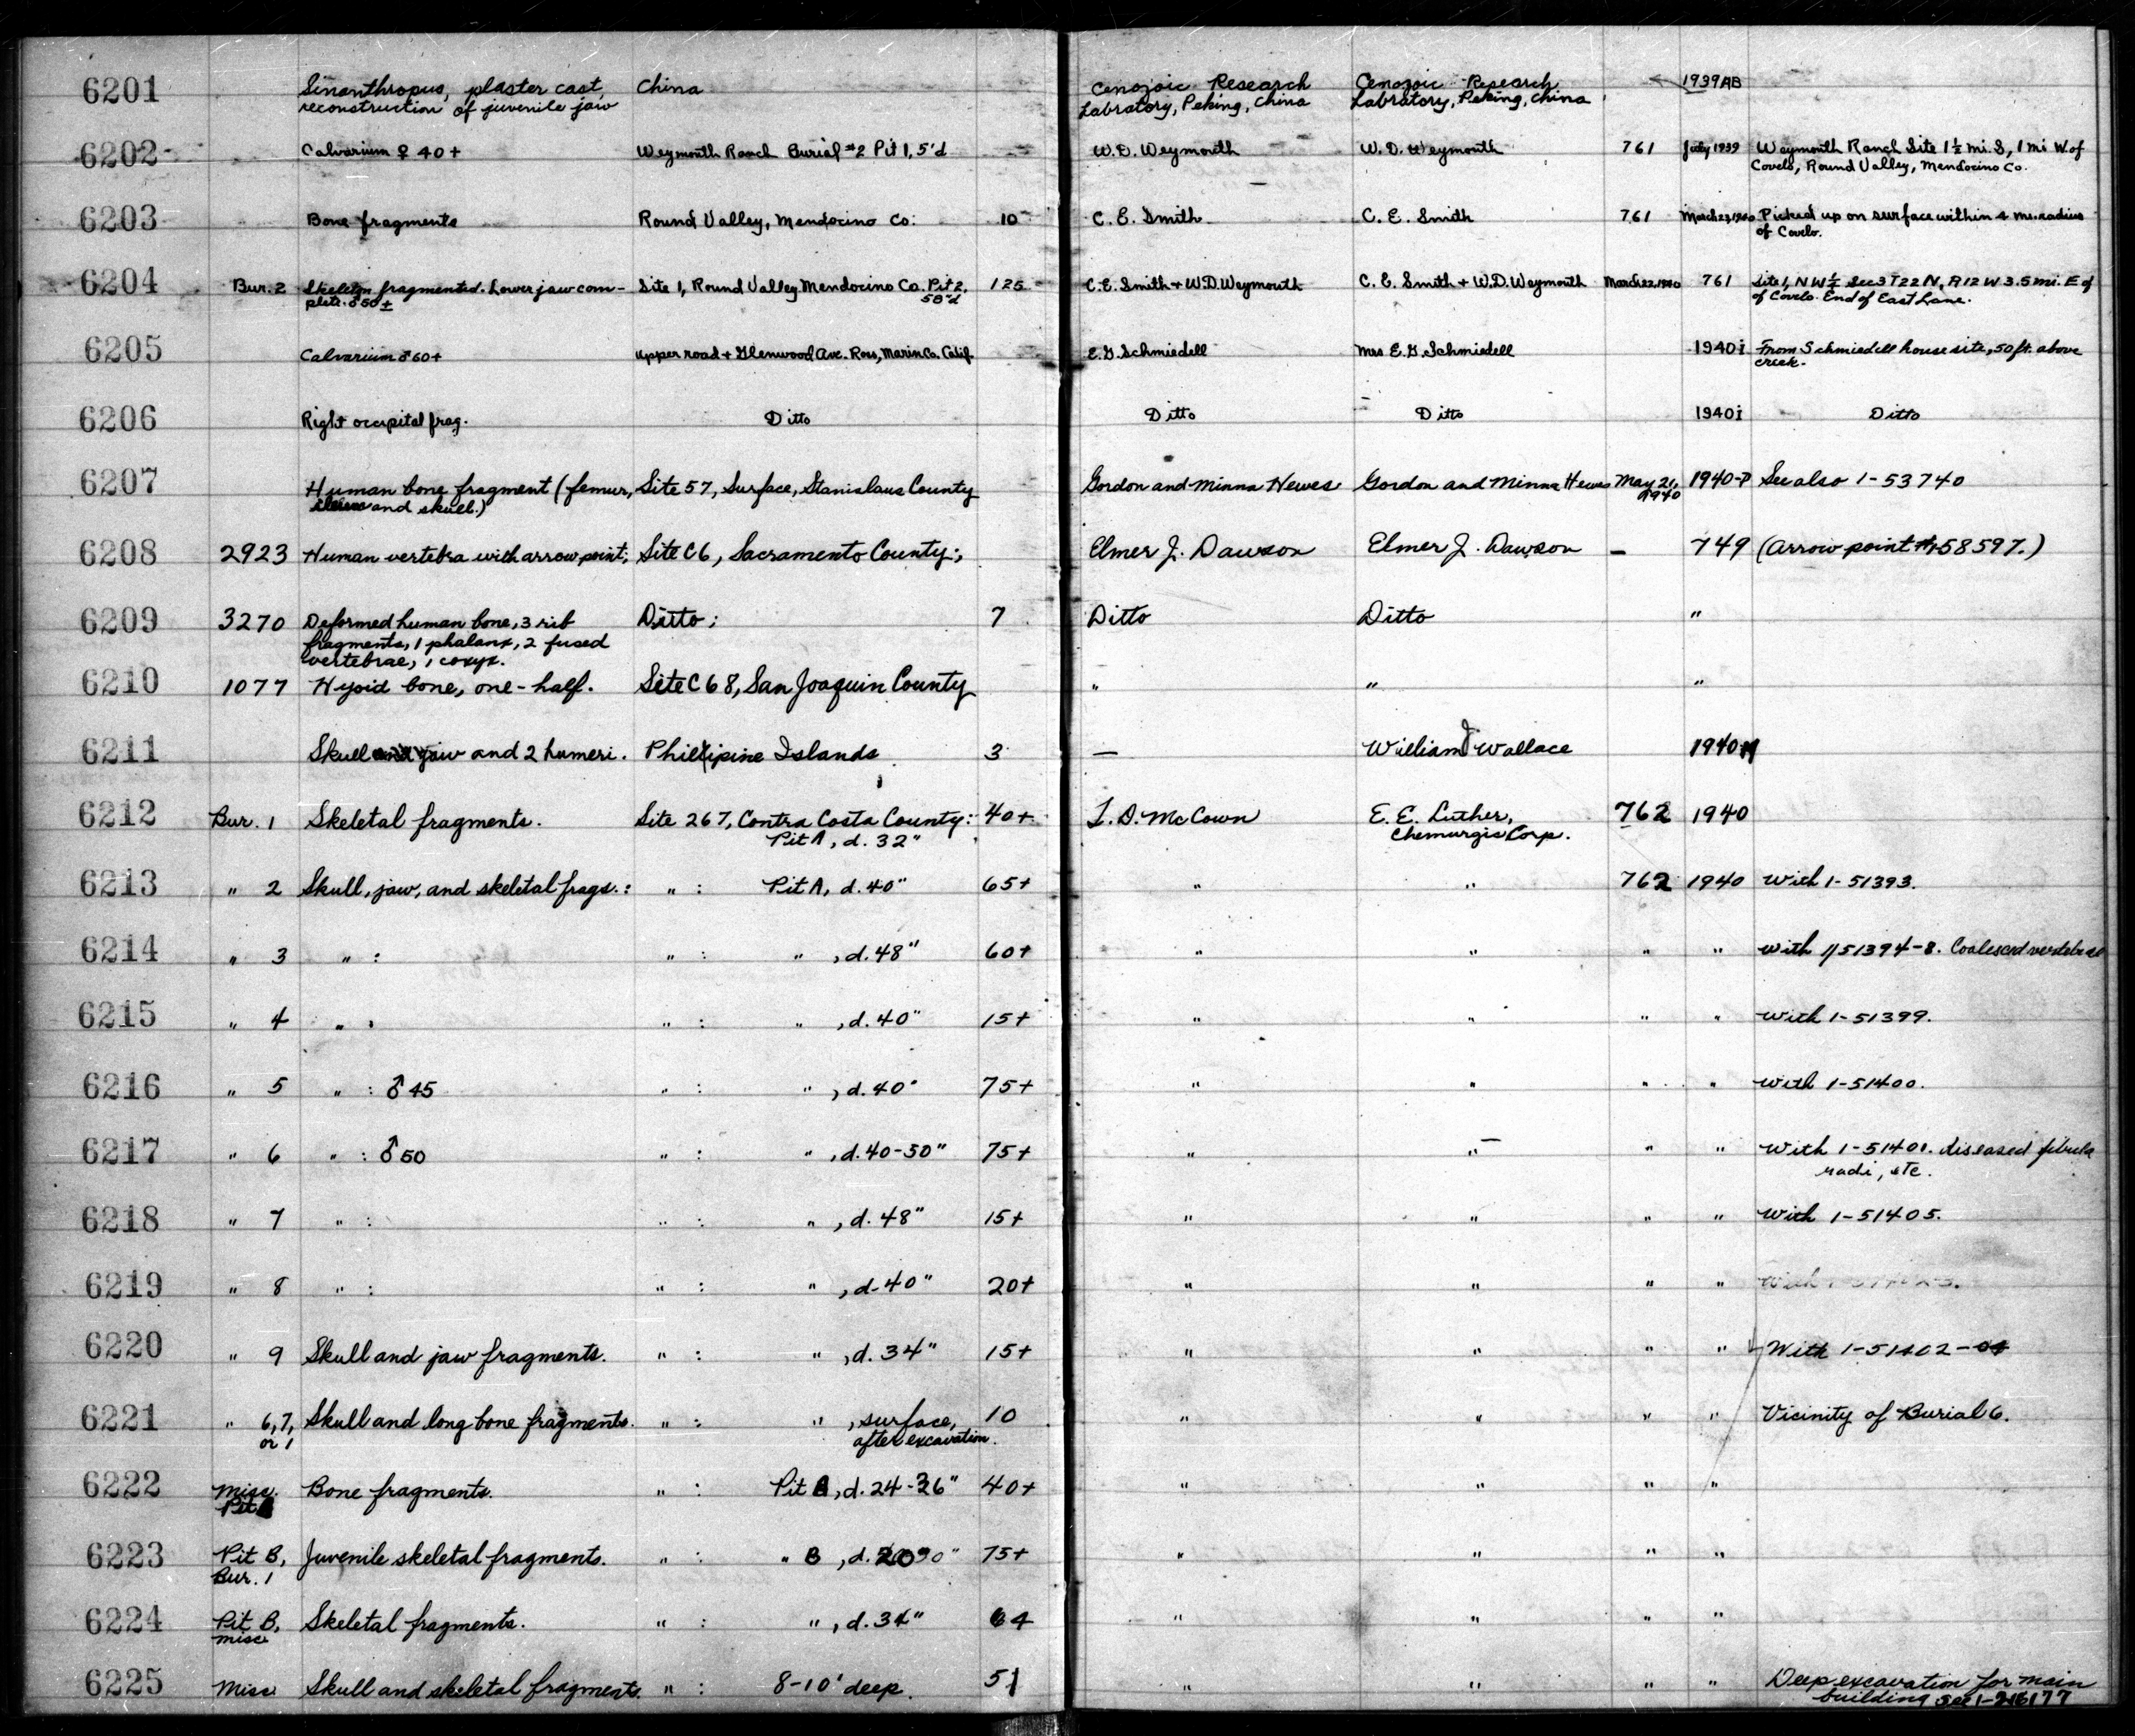 6201 Sinanthropus, plaster cast, China Cenozoic Research Cenozoic Research 1939AB
reconstruction of juvenile jaw Labratory, Peking, China Labratory, Peking, China
6202 Calvarium ♀ 40+ Weymouth Ranch Burial #2 Pit 1, 5'd W.D. Weymouth W.D. Weymouth 761 July 1939 Weymouth Ranch Site 1½ mi. S, 1 mi W. of
Covelo, Round Valley, Mendocino Co.
6203 Bone fragments Round Valley, Mendocino Co. 10 C. E. Smith C. E. Smith 761 March 23, 1940 Picked up on surface within 4 mi. radius
of Covelo.
6204 Bur. 2 Skeleton fragmented. Lower jaw com- Site 1, Round Valley Mendocino Co. Pit 2, 125 C.E. Smith + W.D. Weymouth C. E. Smith + W.D. Weymouth March 22, 1940 761 Site 1, NW½ Sec 3 T22N, R12W 3.5 mi. E of
plete. ♂ 50± 58"d of Covelo. End of East Lane.
6205 Calvarium ♂ 60+ Upper road + Glenwood Ave. Ross, Marin Co. Calif. E.G. Schmiedell Mrs E.G. Schmiedell 1940i From Schmiedell house site, 50 ft. above
creek.
6206 Right occipital frag. Ditto Ditto Ditto 1940i Ditto
6207 Human bone fragment (femur, Site 57, Surface, Stanislaus County Gordon and Minna Hewes Gordon and Minna Hewes May 21, 1940-P See also 1-53740
and skull.) 1940
6208 2923 Human vertebra with arrow point; Site C6, Sacramento County; Elmer J. Dawson Elmer J. Dawson — 749 (Arrow point #1-58597.)
6209 3270 Deformed human bone, 3 rib Ditto; 7 Ditto Ditto "
fragments, 1 phalanx, 2 fused
vertebrae, 1 coxyx.
6210 1077 Hyoid bone, one-half. Site C68, San Joaquin County " " "
6211 Skull jaw and 2 humeri. Phillipine Islands 3 — William J Wallace 1940
6212 Bur. 1 Skeletal fragments. Site 267, Contra Costa County: 40+ T. D. McCown E. E. Luther, 762 1940
Pit A, d. 32" Chemurgic Corp.
6213 " 2 Skull, jaw, and skeletal frags.: " : Pit A, d. 40" 65+ " " 762 1940 With 1-51393.
6214 " 3 " : " : " , d. 48" 60+ " " " " With 1/51394-8. Coalesced vertebrae
6215 " 4 " : " : " , d. 40" 15+ " " " " With 1-51399.
6216 " 5 " : ♂ 45 " : " , d. 40" 75+ " " " " With 1-51400.
6217 " 6 " : ♂ 50 " : " , d. 40-50" 75+ " " " " With 1-51401. diseased fibula
radi, etc.
6218 " 7 " : " : " , d. 48" 15+ " " " " With 1-51405.
6219 " 8 " : " : " , d. 40" 20+ " " " "
6220 " 9 Skull and jaw fragments. " : " , d. 34" 15+ " " " " With 1-51402-04
6221 " 6, 7, Skull and long bone fragments. " : " , surface, 10 " " " " Vicinity of Burial 6.
or 1 after excavation.
6222 Misc. Bone fragments. " : Pit , d. 24-36" 40+ " " " "
Pit
6223 Pit B, Juvenile skeletal fragments. " : " B , d. 75+ " " " "
Bur. 1
6224 Pit B, Skeletal fragments. " : " , d. 34" 64 " " " "
misc
6225 Misc. Skull and skeletal fragments. " : 8-10' deep. 51 " " " " Deep excavation for main
building